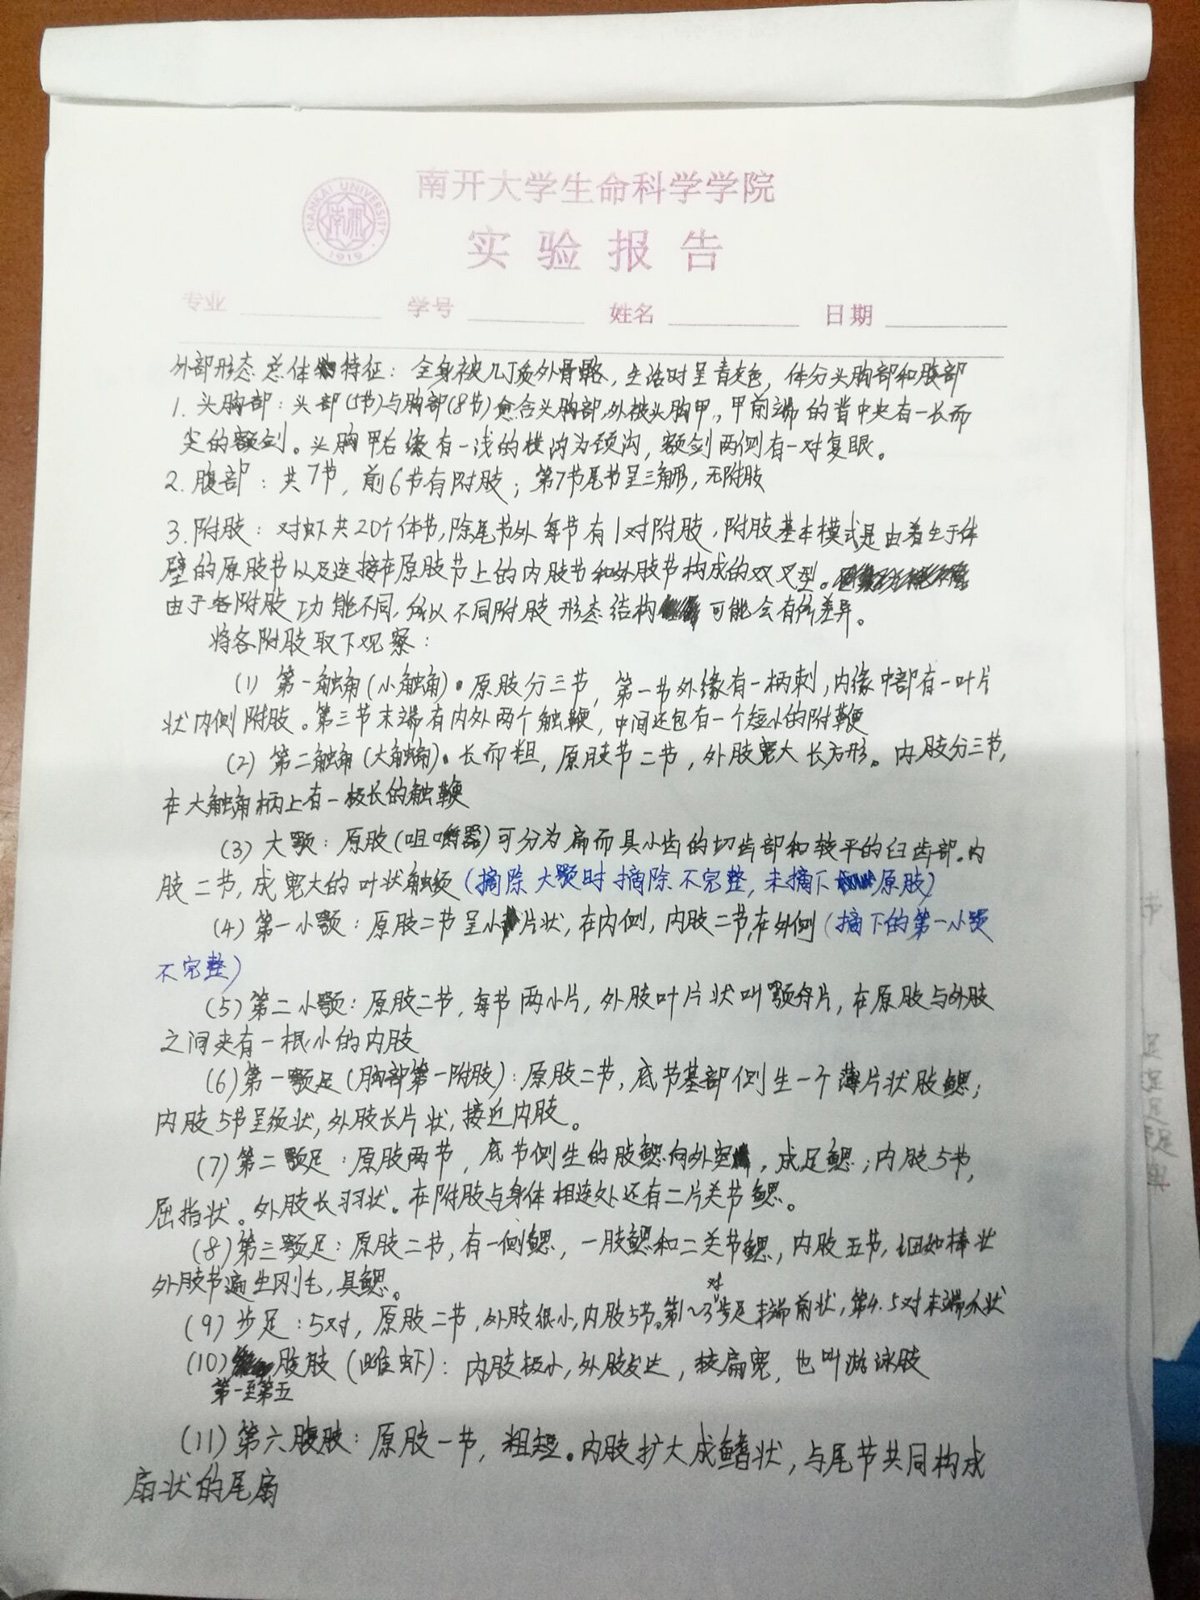 南开大学生命科学学院
NANKAI UNIVERSITY
1919
实验报告
专业 学号 姓名 日期
外部形态总体特征：全身被几丁质外骨骼，生活时呈青灰色，体分头胸部和腹部
1. 头胸部：头部(5节)与胸部(8节)愈合头胸部，外被头胸甲，甲前端的背中央有一长而
尖的额剑。头胸甲右缘有一浅的横沟为颈沟，额剑两侧有一对复眼。
2. 腹部：共7节，前6节有附肢；第7节尾节呈三角形，无附肢
3. 附肢：对虾共20个体节，除尾节外每节有1对附肢，附肢基本模式是由着生于体
壁的原肢节以及连接在原肢节上的内肢节和外肢节构成的双叉型。
由于各附肢功能不同，所以不同附肢形态结构可能会有所差异。
将各附肢取下观察：
(1) 第一触角(小触角)。原肢分三节，第一节外缘有一柄刺，内缘中部有一叶片
状内侧附肢。第三节末端有内外两个触鞭，中间还包有一个短小的附鞭
(2) 第二触角(大触角)。长而粗，原肢节二节，外肢宽大长方形。内肢分三节，
在大触角柄上有一极长的触鞭
(3) 大颚：原肢(咀嚼器)可分为扁而具小齿的切齿部和较平的臼齿部。内
肢二节，成宽大的叶状触须(摘除大颚时摘除不完整，未摘下原肢)
(4) 第一小颚：原肢二节呈小片状，在内侧，内肢二节，在外侧(摘下的第一小颚
不完整)
(5) 第二小颚：原肢二节，每节两小片，外肢叶片状叫颚舟片，在原肢与外肢
之间夹有一根小的内肢
(6) 第一颚足(胸部第一附肢)：原肢二节，底节基部侧生一个薄片状肢鳃；
内肢5节呈须状，外肢长片状，接近内肢。
(7) 第二颚足：原肢两节，底节侧生的肢鳃向外突，成足鳃；内肢5节，
屈指状。外肢长羽状。在附肢与身体相连处还有二片关节鳃。
(8) 第三颚足：原肢二节，有一侧鳃，一肢鳃和二关节鳃，内肢五节，细如棒状
外肢节遍生刚毛，具鳃。
(9) 步足：5对，原肢二节，外肢很小，内肢5节。第1~3对步足末端钳状，第4.5对末端爪状
(10) 第一至第五腹肢(雌虾)：内肢极小，外肢发达，较扁宽，也叫游泳肢
(11) 第六腹肢：原肢一节，粗短。内肢扩大成鳍状，与尾节共同构成
扇状的尾扇